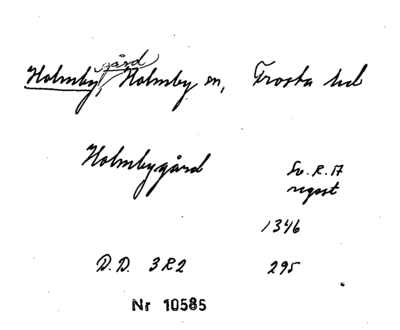 Holmbygård, Holmby sn, Frosta hd
Holmbygård
Sv. R. 17
regest
1346
D. D. 3 R 2 295
Nr 10585